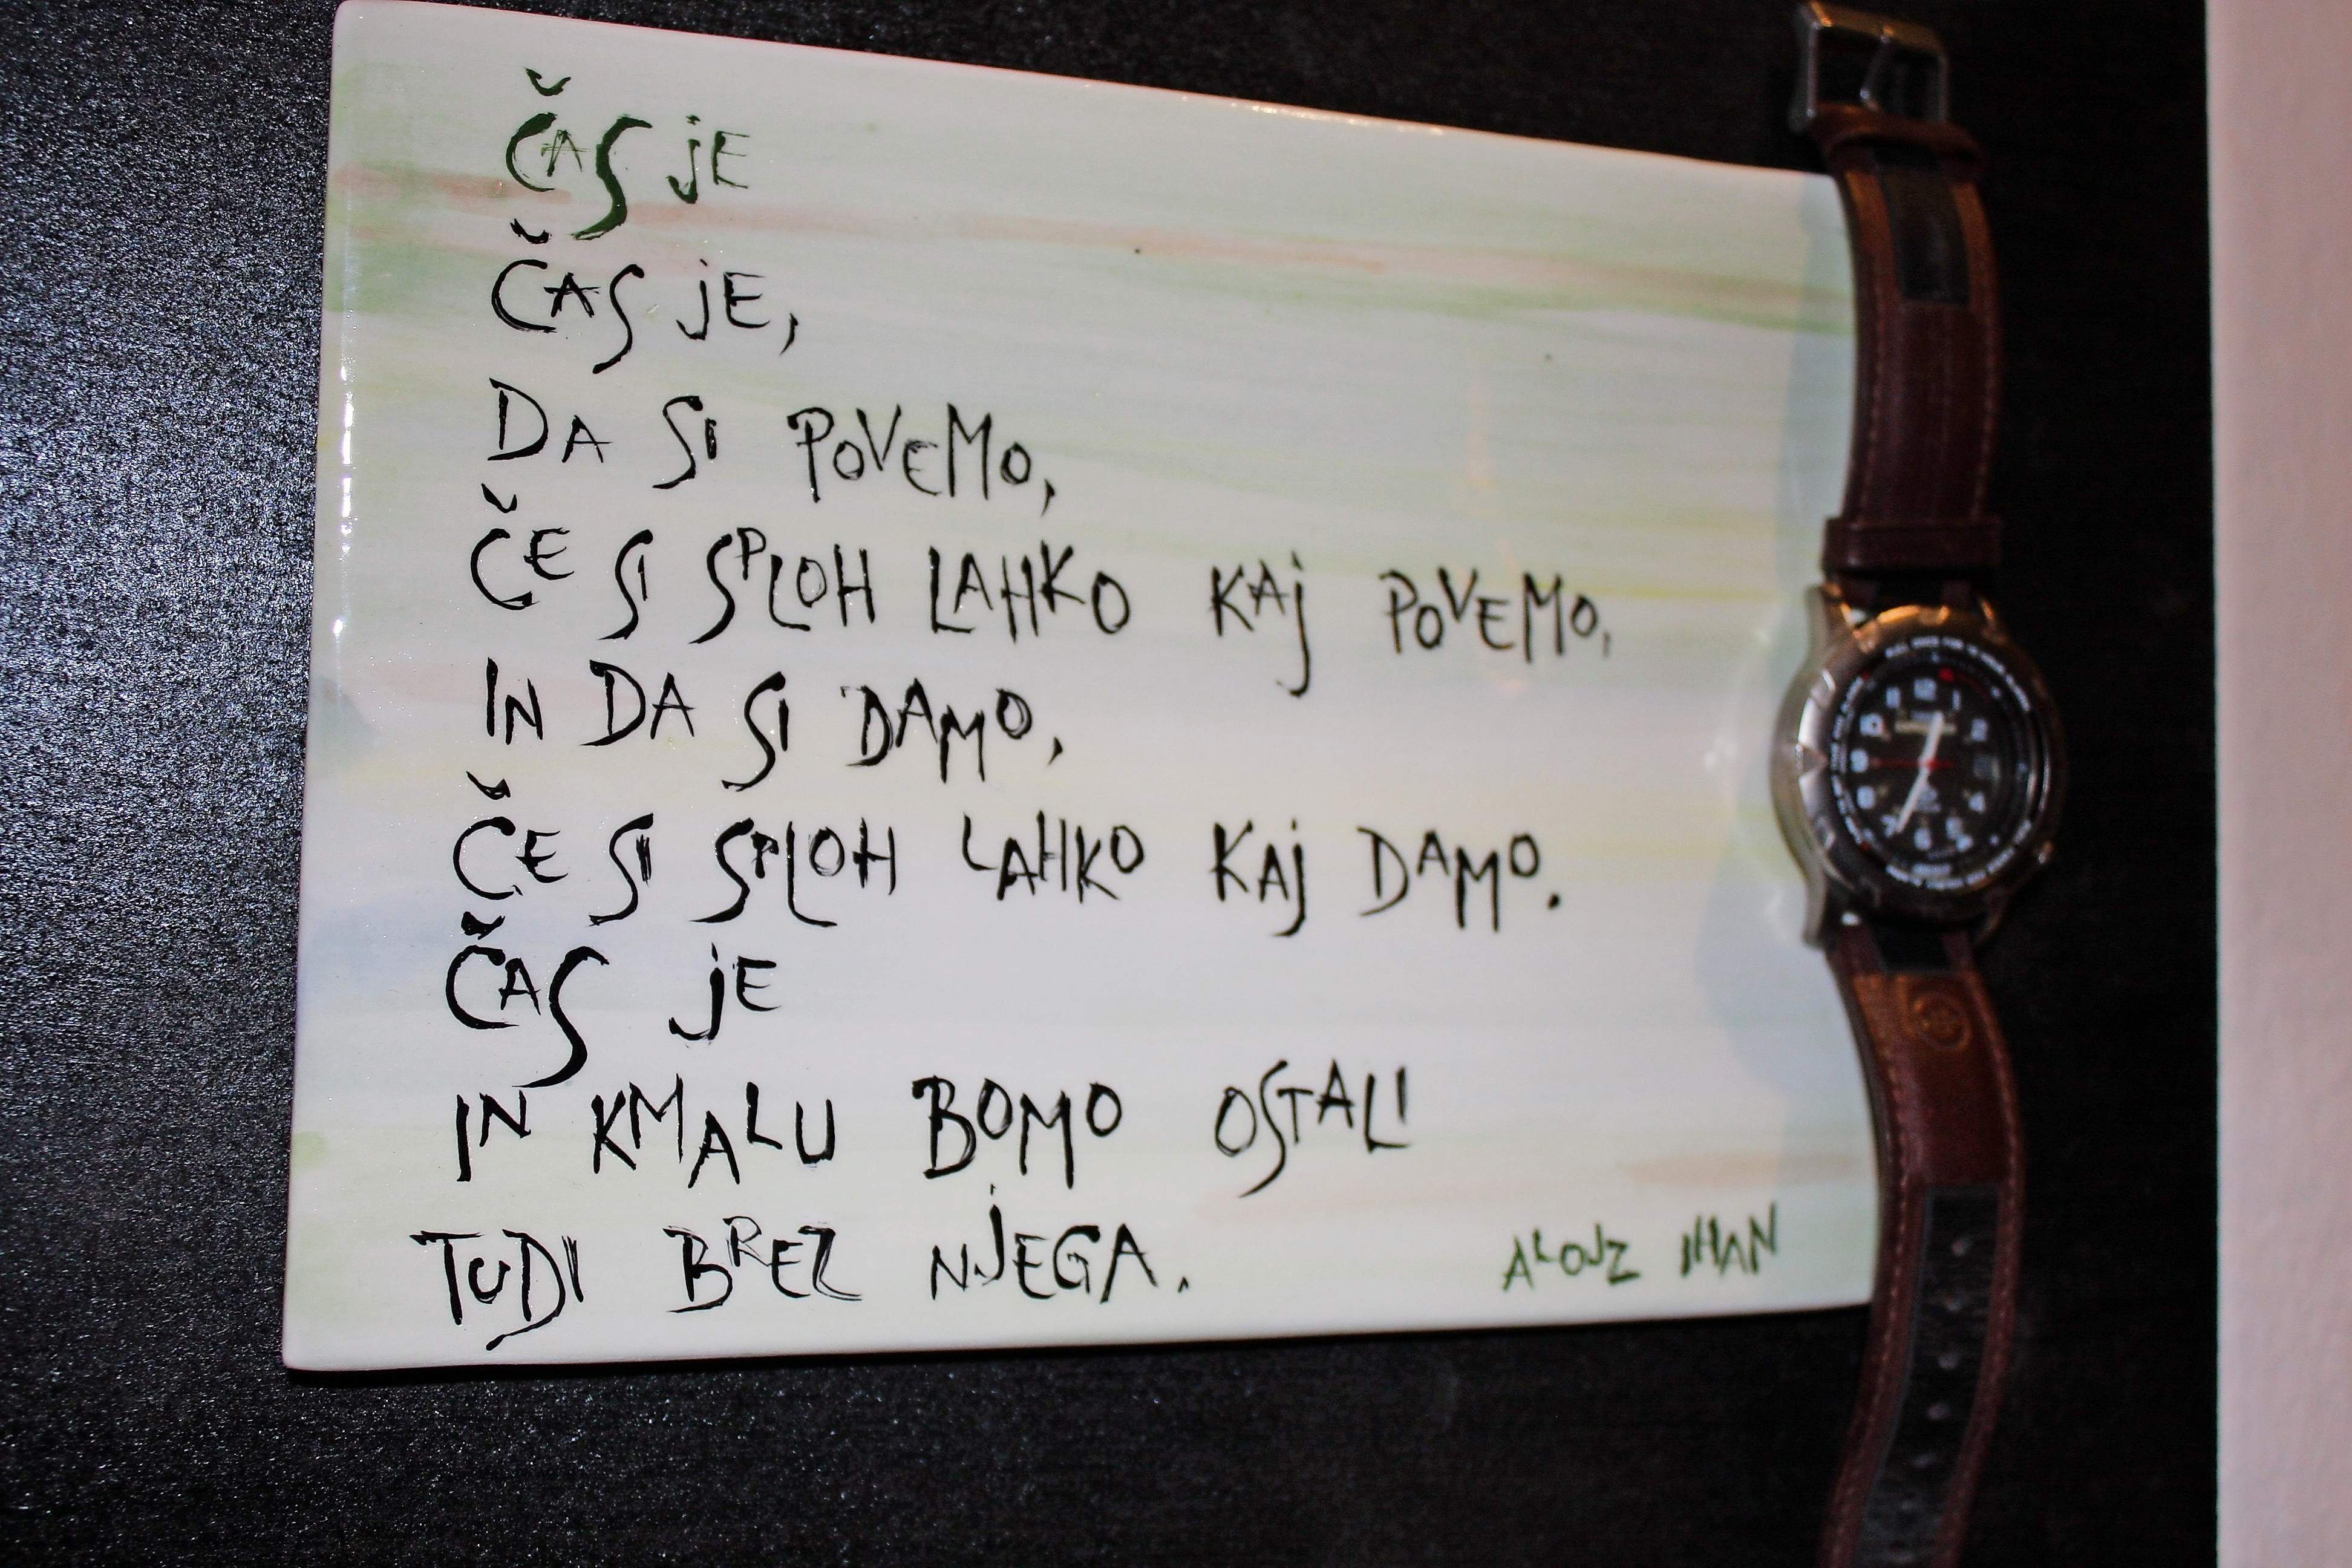 ČAS JE
ČAS JE,
DA SI POVEMO,
ČE SI SPLOH LAHKO KAJ POVEMO,
IN DA SI DAMO,
ČE SI SPLOH LAHKO KAJ DAMO.
ČAS JE
IN KMALU BOMO OSTALI
TUDI BREZ NJEGA.
ALOJZ IHAN
12
1
2
4
5
6
7
8
9
10
11